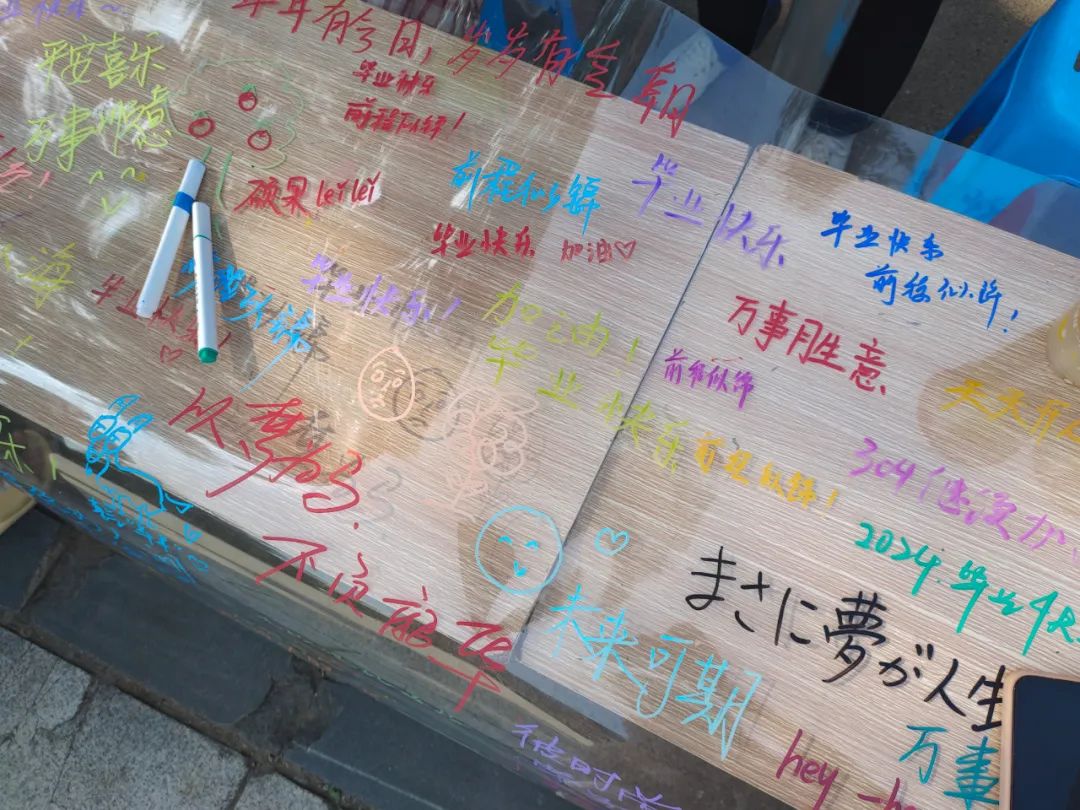 年年有今日,岁岁有今朝
毕业快乐
前程似锦!
平安喜乐
万事顺意
硕果leilei
前程似锦
毕业快乐
毕业快乐 加油♡
毕业快乐
前程似锦!
毕业快乐!
毕业快乐!
加油!
毕业快乐
万事胜意
前程似锦
天天开
前程似锦!
304继续加
以梦为马,
不负韶华
2024.毕业快
まさに夢が人生
未来可期
万事
hey